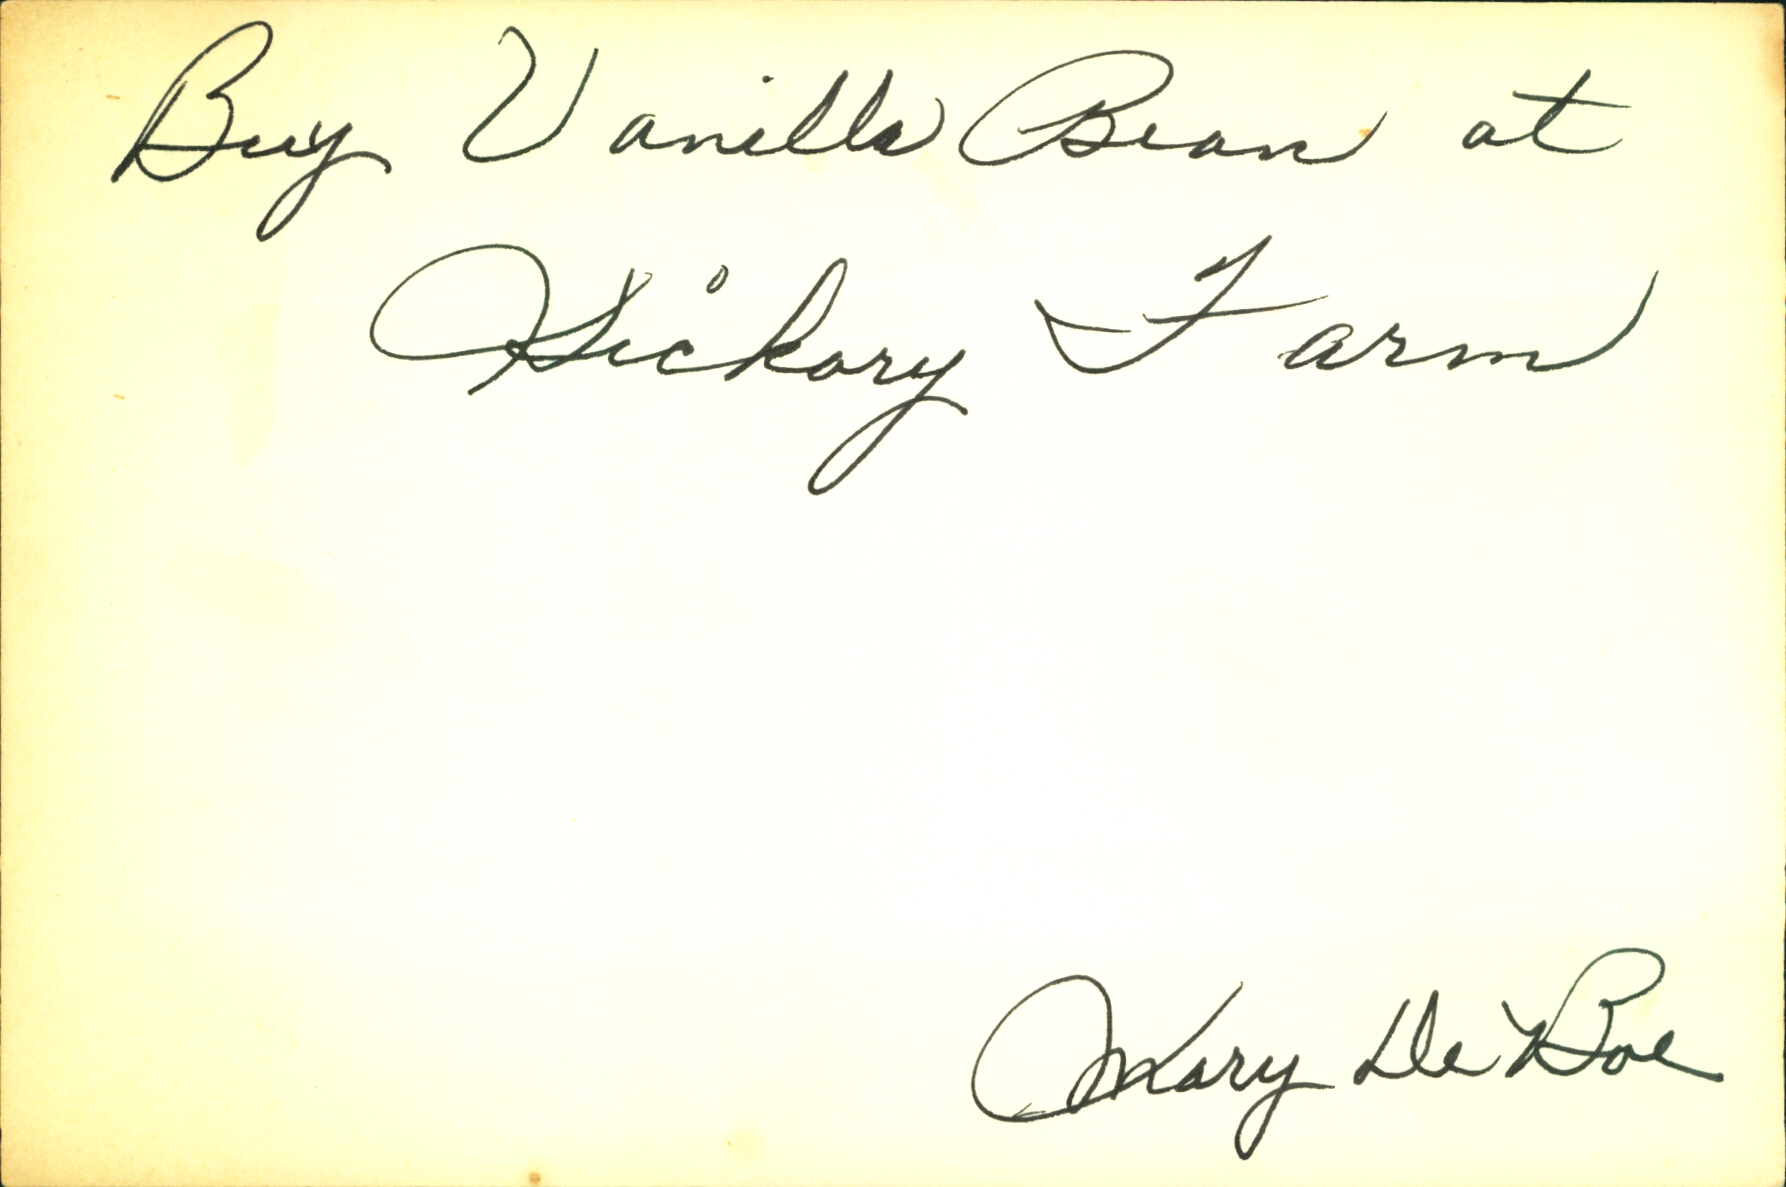 Buy Vanilla Bean at
Hickory Farm
Mary De Boe